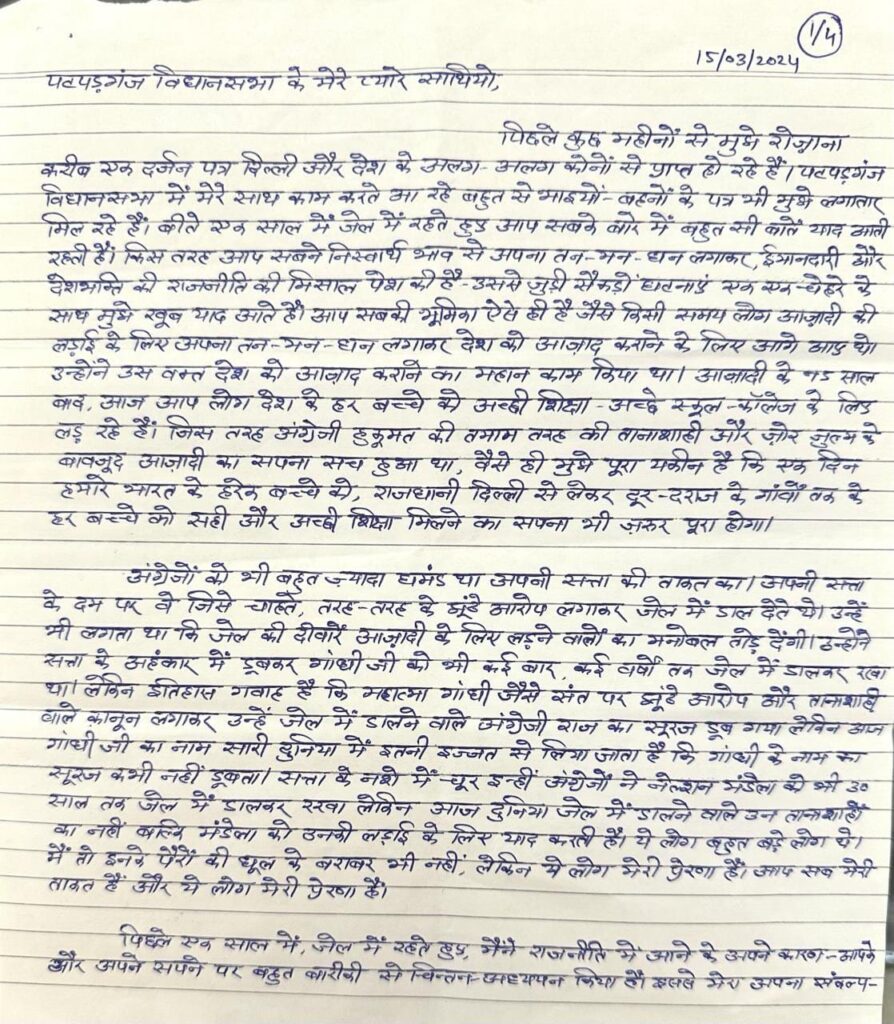 1/4
15/03/2024
पटपड़गंज विधानसभा के मेरे प्यारे साथियो,
पिछले कुछ महीनों से मुझे रोज़ाना
करीब एक दर्जन पत्र दिल्ली और देश के अलग-अलग कोनों से प्राप्त हो रहे हैं। पटपड़गंज
विधानसभा में मेरे साथ काम करते आ रहे बहुत से भाइयों-बहनों के पत्र भी मुझे लगातार
मिल रहे हैं। बीते एक साल में जेल में रहते हुए आप सबके बारे में बहुत सी बातें याद आती
रहती हैं। किस तरह आप सबने निस्वार्थ भाव से अपना तन-मन-धन लगाकर, ईमानदारी और
देशभक्ति की राजनीति की मिसाल पेश की है-उससे जुड़ी सैकड़ों घटनाएं एक एक-चेहरे के
साथ मुझे खूब याद आते हैं। आप सबकी भूमिका ऐसे ही है जैसे किसी समय लोग आज़ादी की
लड़ाई के लिए अपना तन-मन-धन लगाकर देश को आज़ाद कराने के लिए आगे आए थे।
उन्होंने उस वक्त देश को आज़ाद कराने का महान काम किया था। आज़ादी के 75 साल
बाद, आज आप लोग देश के हर बच्चे को अच्छी शिक्षा-अच्छे स्कूल-कॉलेज के लिए
लड़ रहे हैं। जिस तरह अंग्रेजी हुकूमत की तमाम तरह की तानाशाही और ज़ोर जुल्म के
बावजूद आज़ादी का सपना सच हुआ था, वैसे ही मुझे पूरा यकीन है कि एक दिन
हमारे भारत के हरेक बच्चे को, राजधानी दिल्ली से लेकर दूर-दराज के गांवों तक के
हर बच्चे को सही और अच्छी शिक्षा मिलने का सपना भी ज़रूर पूरा होगा।
अंग्रेजों को भी बहुत ज़्यादा घमंड था अपनी सत्ता की ताकत का। अपनी सत्ता
के दम पर वे जिसे चाहते, तरह-तरह के झूंठे आरोप लगाकर जेल में डाल देते थे। उन्हें
भी लगता था कि जेल की दीवारें आज़ादी के लिए लड़ने वालों का मनोबल तोड़ देंगी। उन्होंने
सत्ता के अहंकार में डूबकर गांधी जी को भी कई बार, कई वर्षों तक जेल में डालकर रखा
था। लेकिन इतिहास गवाह है कि महात्मा गांधी जैसे संत पर झूंठे आरोप और तानाशाही
वाले कानून लगाकर उन्हें जेल में डालने वाले अंग्रेजी राज का सूरज डूब गया लेकिन आज
गांधी जी का नाम सारी दुनिया में इतनी इज्जत से लिया जाता है कि गांधी के नाम का
सूरज कभी नहीं डूबता। सत्ता के नशे में चूर इन्हीं अंग्रेजों ने नेल्शन मंडेला को भी 30
साल तक जेल में डालकर रखा लेकिन आज दुनिया जेल में डालने वाले उन तानाशाहों
का नहीं बल्कि मंडेला को उनकी लड़ाई के लिए याद करती है। ये लोग बहुत बड़े लोग थे।
मैं तो इनके पैरों की धूल के बराबर भी नहीं, लेकिन ये लोग मेरी प्रेरणा हैं। आप सब मेरी
ताकत हैं और ये लोग मेरी प्रेरणा हैं।
पिछले एक साल में, जेल में रहते हुए, मैंने राजनीति में आने के अपने कारण-आपके
और अपने सपने पर बहुत बारीकी से चिन्तन-अध्ययन किया है। इससे मेरा अपना संकल्प-